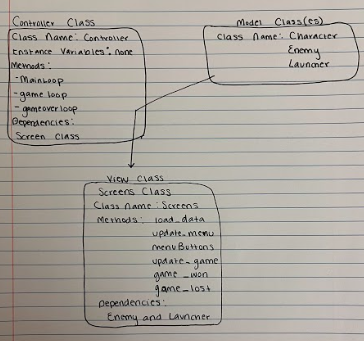 Controller Class
Class Name: Controller
Instance Variables: none
Methods:
- Mainloop
- game loop
- gameover loop
Dependencies:
Screen Class
Model Class(es)
Class Name: Character
Enemy
Launcher
View Class
Screens Class
Class Name: Screens
Methods: load_data
update_menu
menuButtons
update_game
game_won
game_lost
Dependencies:
Enemy and Launcher